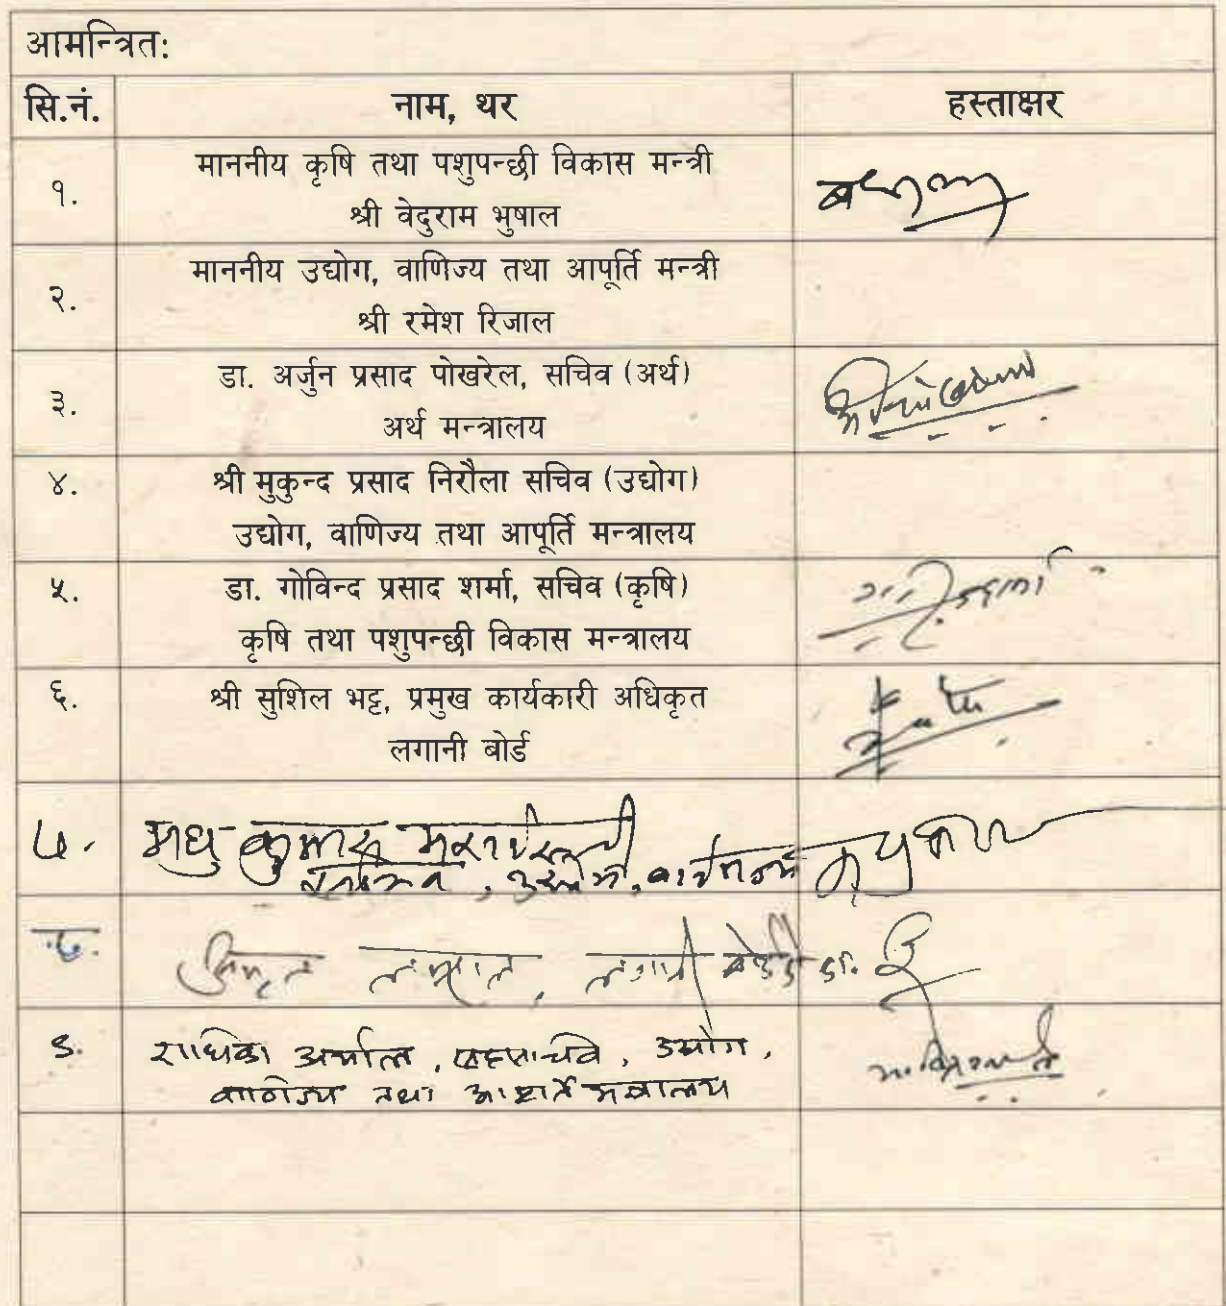 आमन्त्रित:
सि.नं. नाम, थर हस्ताक्षर
१. माननीय कृषि तथा पशुपन्छी विकास मन्त्री
श्री वेदुराम भुषाल
२. माननीय उद्योग, वाणिज्य तथा आपूर्ति मन्त्री
श्री रमेश रिजाल
३. डा. अर्जुन प्रसाद पोखरेल, सचिव (अर्थ)
अर्थ मन्त्रालय
४. श्री मुकुन्द प्रसाद निरौला सचिव (उद्योग)
उद्योग, वाणिज्य तथा आपूर्ति मन्त्रालय
५. डा. गोविन्द प्रसाद शर्मा, सचिव (कृषि)
कृषि तथा पशुपन्छी विकास मन्त्रालय
६. श्री सुशिल भट्ट, प्रमुख कार्यकारी अधिकृत
लगानी बोर्ड
७. मधु कुमार
८. अमृत लम्साल, लगानी बोर्ड
९. राधिका अर्याल, सहसचिव, उद्योग,
वाणिज्य तथा आपूर्ति मन्त्रालय